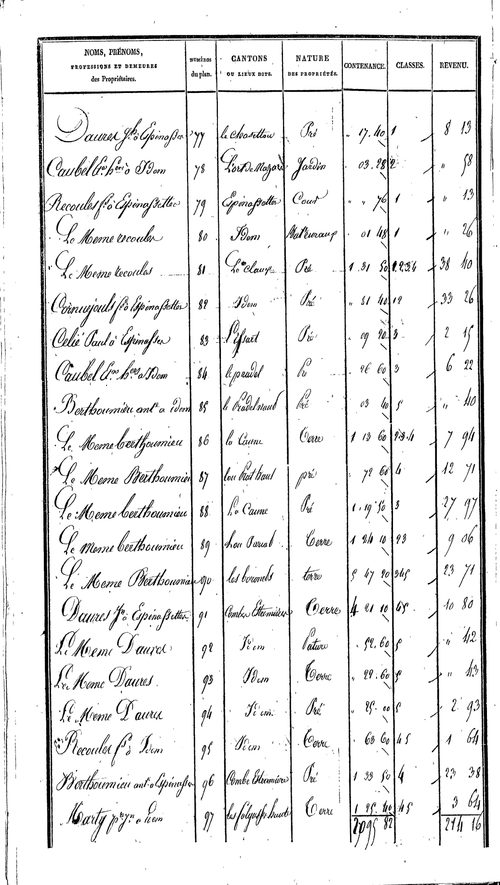 NOMS, PRÉNOMS, PROFESSIONS ET DEMEURES des Propriétaires. NUMÉROS du plan. CANTONS OU LIEUX DITS. NATURE DES PROPRIÉTÉS. CONTENANCE. CLASSES. REVENU.
Daures Jh à Espinasset 77 le chasettou Pré " 17. 40 1 8 13
Caubel hers à Idem 78 L'ort de Jardin " 03. 28 2 " 58
Recoules fs à Espinassettes 79 Espinassettes Cour " " 76 1 " 13
Le Meme recoules 80 Idem " 01 48 1 " 26
Le Meme recoules 81 claux Pré 1 31 50 1.2.3.4 38 40
Cornuejouls fs à Espinassettes 82 Idem Pré " 51 40 12 33 26
Celié Paul à Espinasset 83 Pré " 19 20 3 2 15
Caubel hers à Idem 84 le pradel Pré " 26 60 3 6 22
Berthoumieu ant. à idem 85 le Pré " 03 40 5 " 40
Le Meme berthoumieu 86 la Caune Terre 1 13 60 2.3.4 7 94
Le Meme Berthoumieu 87 lou prat haut pré " 72 60 4 12 71
Le Meme berthoumieu 88 La Caune Pré 1. 19 50 3 27 97
Le meme berthoumieu 89 Lou Terre 1 24 10 23 9 06
Le Meme Berthoumieu 90 les terre 5 47 20 345 23 71
Daures Jh à Espinassettes 91 Combe Terre 4 21 10 45 10 80
Le Meme Daures 92 Idem Pature " 52. 60 5 " 42
Le Meme Daures 93 Idem Terre " 22. 60 5 " 43
Le Meme Daures 94 Idem Pré " 25 00 5 2 93
Recoules fs à Idem 95 Idem Terre " 63 60 45 1 64
Berthoumieu ant. à Espinasset 96 Combe Pré 1 33 50 4 23 38
Marty à Idem 97 les Terre 1 25. 40 45 3 64
2095 82 214 16